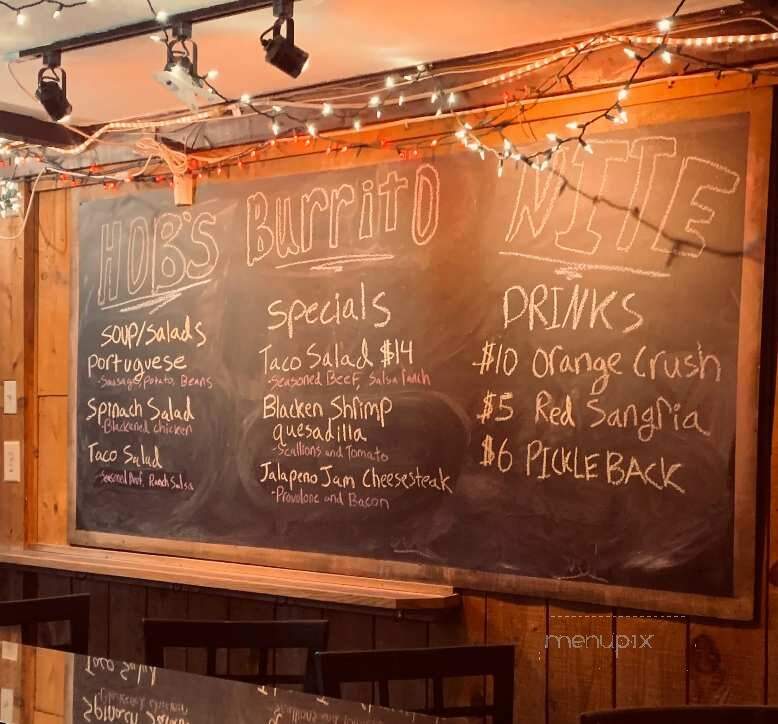 HOB'S Burrito NITE
SOUP/Salads
Portuguese
-Sausage, Potato, Beans
Spinach Salad
-Blackened chicken
Taco Salad
-Seasoned Beef, Ranch Salsa
Specials
Taco Salad $14
-Seasoned Beef, Salsa Ranch
Blacken Shrimp
quesadilla
-Scallions and Tomato
Jalapeno Jam Cheesesteak
-Provolone and Bacon
DRINKS
$10 Orange Crush
$5 Red Sangria
$6 PICKLEBACK
menupix